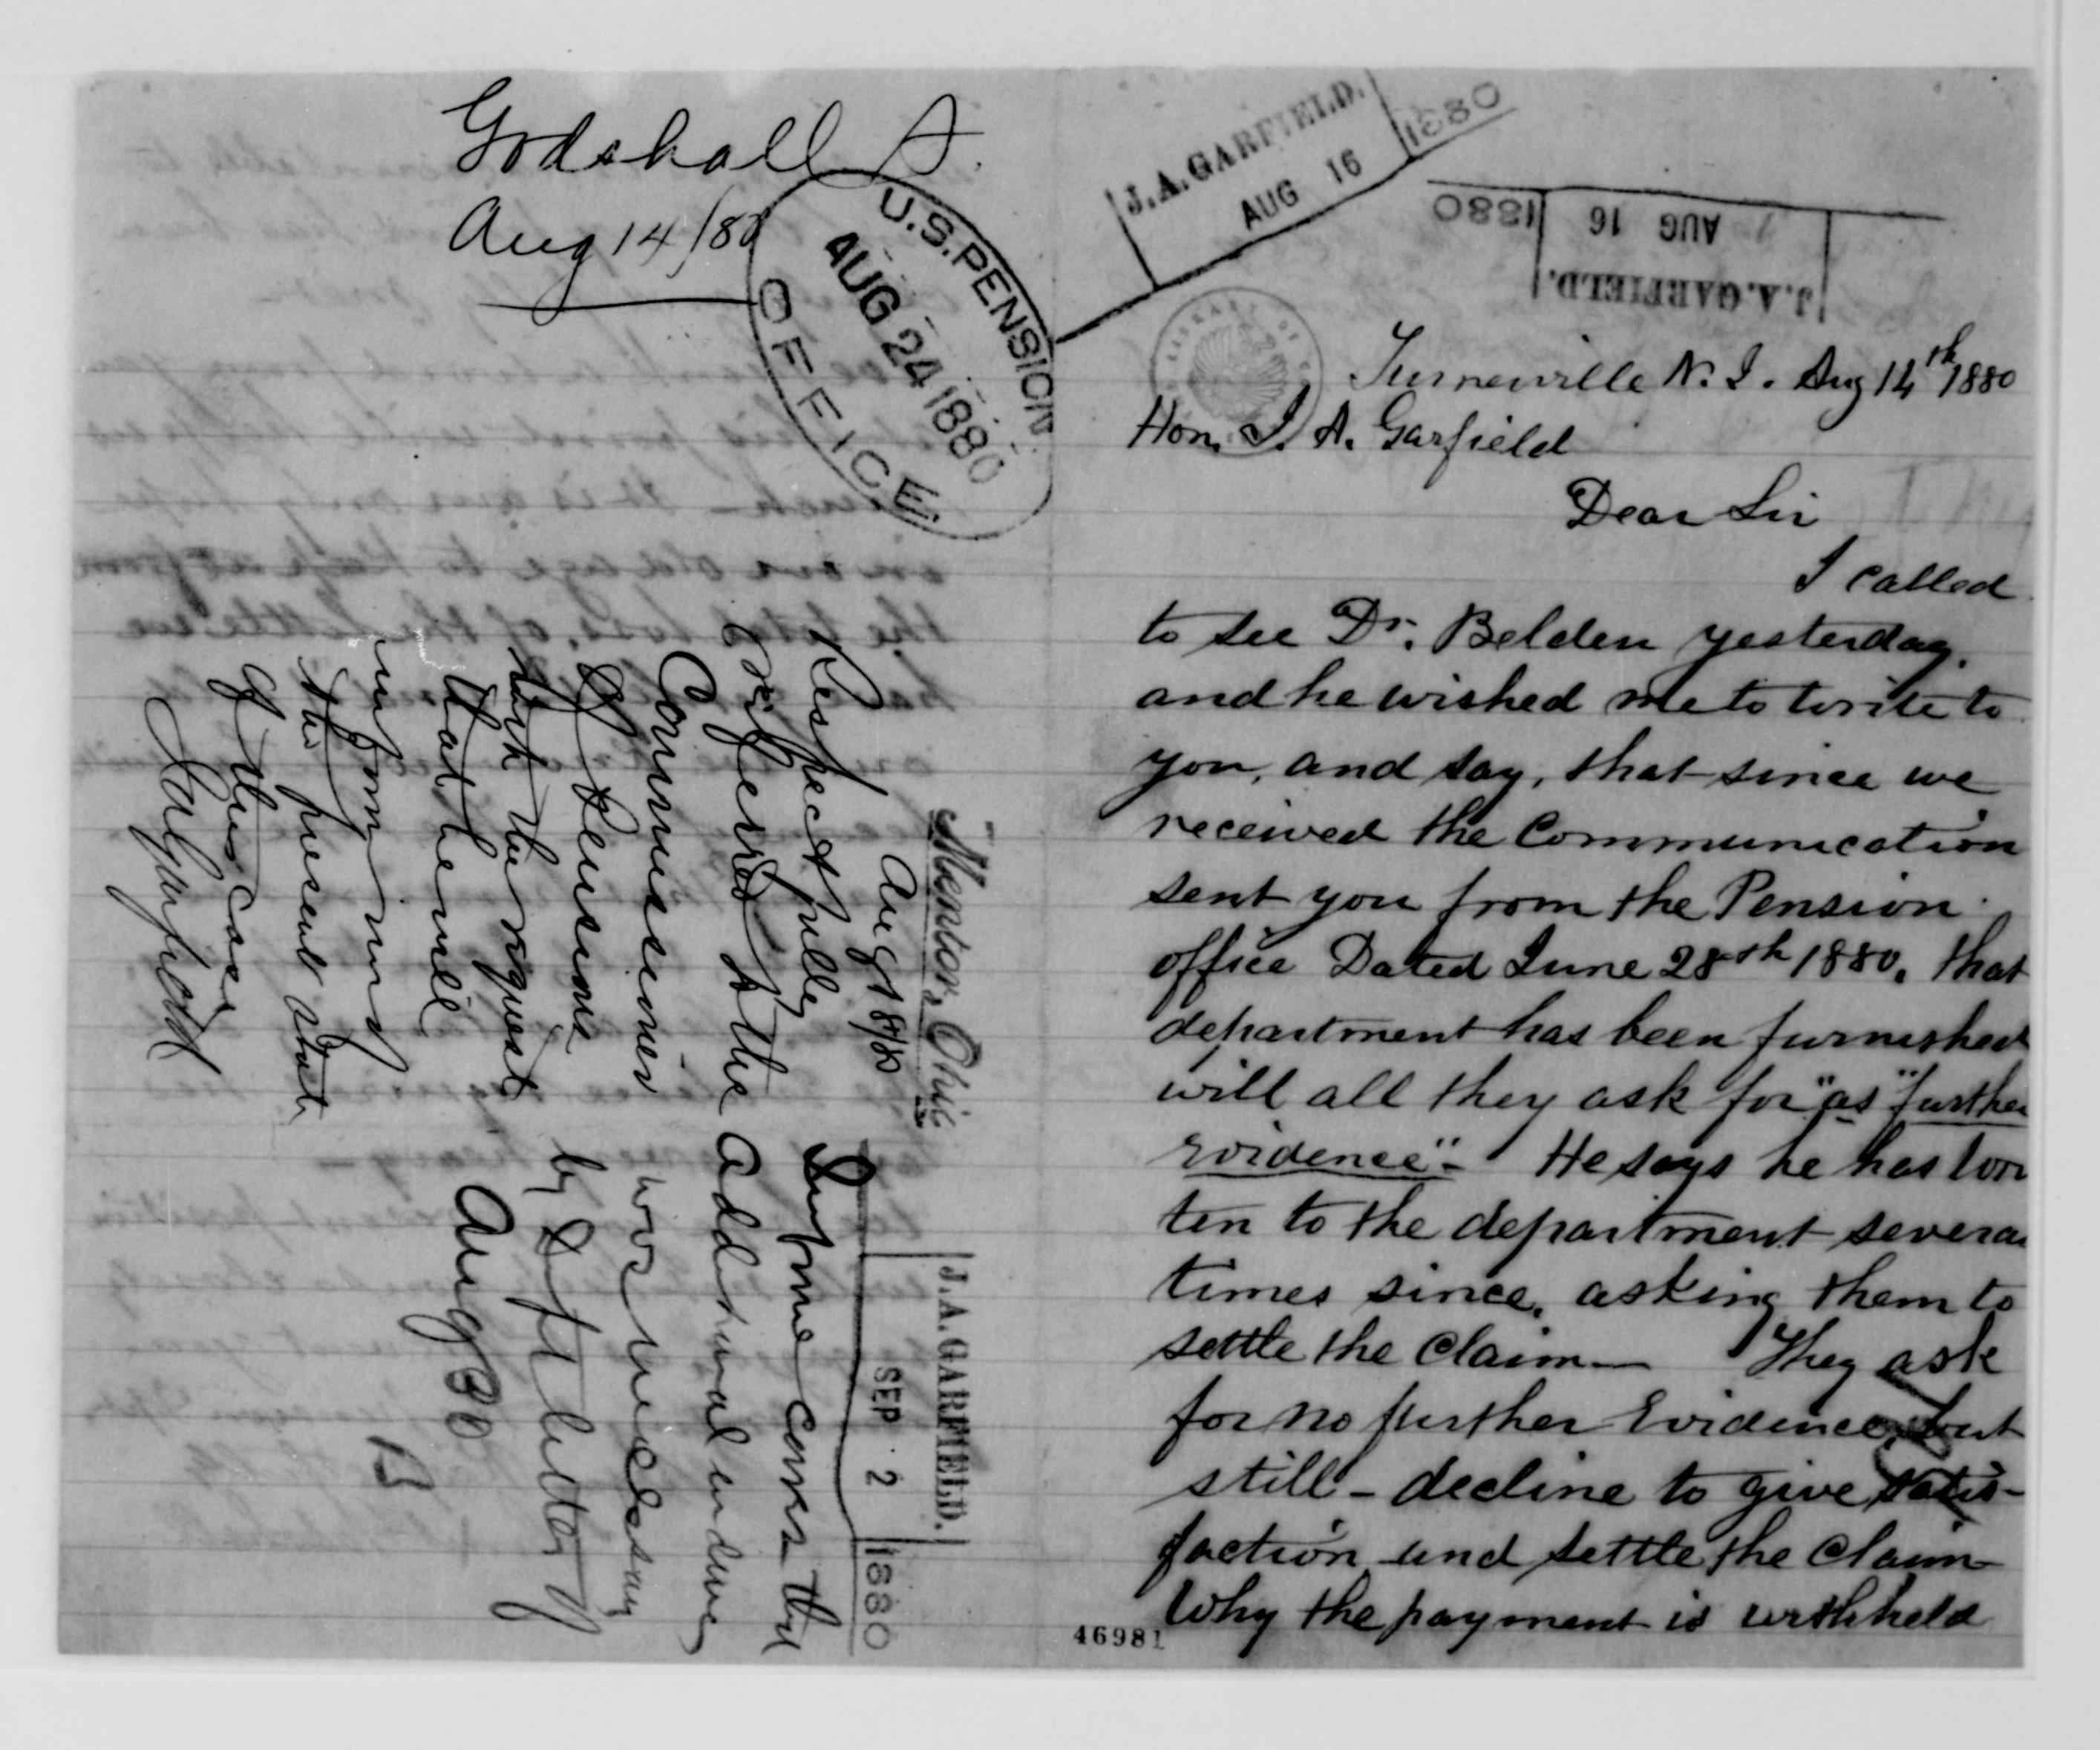 Godshall S.
Aug 14/80
U.S. PENSION
AUG 24 1880
OFFICE
Mentor, Ohio
Aug 18/80
Respectfully
referred to the
Commissioner
of Pensions
with the request
that he will
inform me of
the present state
of this case
J A Garfield
Inform Correr that
additional evidence
was necessary
by Dft letter of
Aug 30
J.A. GARFIELD.
SEP 2 1880
J.A. GARFIELD.
AUG 16 1880
J.A. GARFIELD.
AUG 16 1880
LIBRARY OF
Turnerville N. J. Aug 14th 1880
Hon. J. A. Garfield
Dear Sir
I called
to see Dr. Belden yesterday.
and he wished me to write to
you, and say, that since we
received the Communication
sent you from the Pension
office Dated June 28th 1880. that
department has been furnished
will all they ask for "as" "further
evidence". He says he has wri
ten to the department severa
times since, asking them to
settle the Claim— They ask
for no further Evidence, but
still - decline to give satis-
faction and settle the Claim
Why the payment is withheld
46981